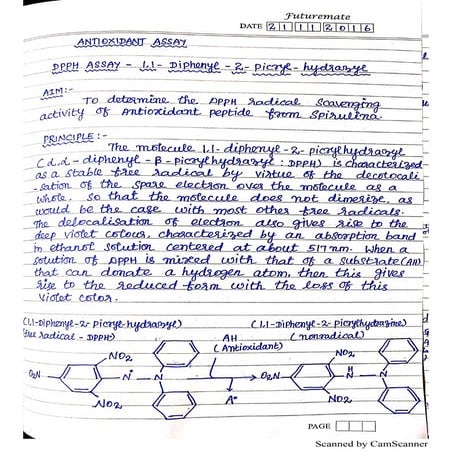 Futuremate
DATE 2 1 1 1 2 0 1 6
ANTIOXIDANT ASSAY
DPPH ASSAY - 1,1- Diphenyl - 2- picryl - hydrazyl
AIM:-
To determine the DPPH radical scavenging
activity of Antioxidant peptide from Spirulina.
PRINCIPLE:-
The molecule 1,1-diphenyl-2-picrylhydrazyl
(d,d-diphenyl-β-picrylhydrazyl: DPPH) is characterized
as a stable free radical by virtue of the decolocali
-sation of the spare electron over the molecule as a
whole. So that the molecule does not dimerize, as
would be the case with most other free radicals.
The delocalisation of electron also gives rise to the
deep violet colour, characterized by an absorption band
in ethanol solution centered at about 517 nm. When a
solution of DPPH is mixed with that of a substrate (AH)
that can donate a hydrogen atom, then this gives
rise to the reduced form with the loss of this
violet color.
(1,1-Diphenyl-2-picryl-hydrazyl) (1,1-Diphenyl-2-picrylhydrazine)
(free radical - DPPH) AH (nonradical)
(Antioxidant)
NO2 NO2
O2N N N O2N H N N
NO2 A NO2
PAGE
Scanned by CamScanner